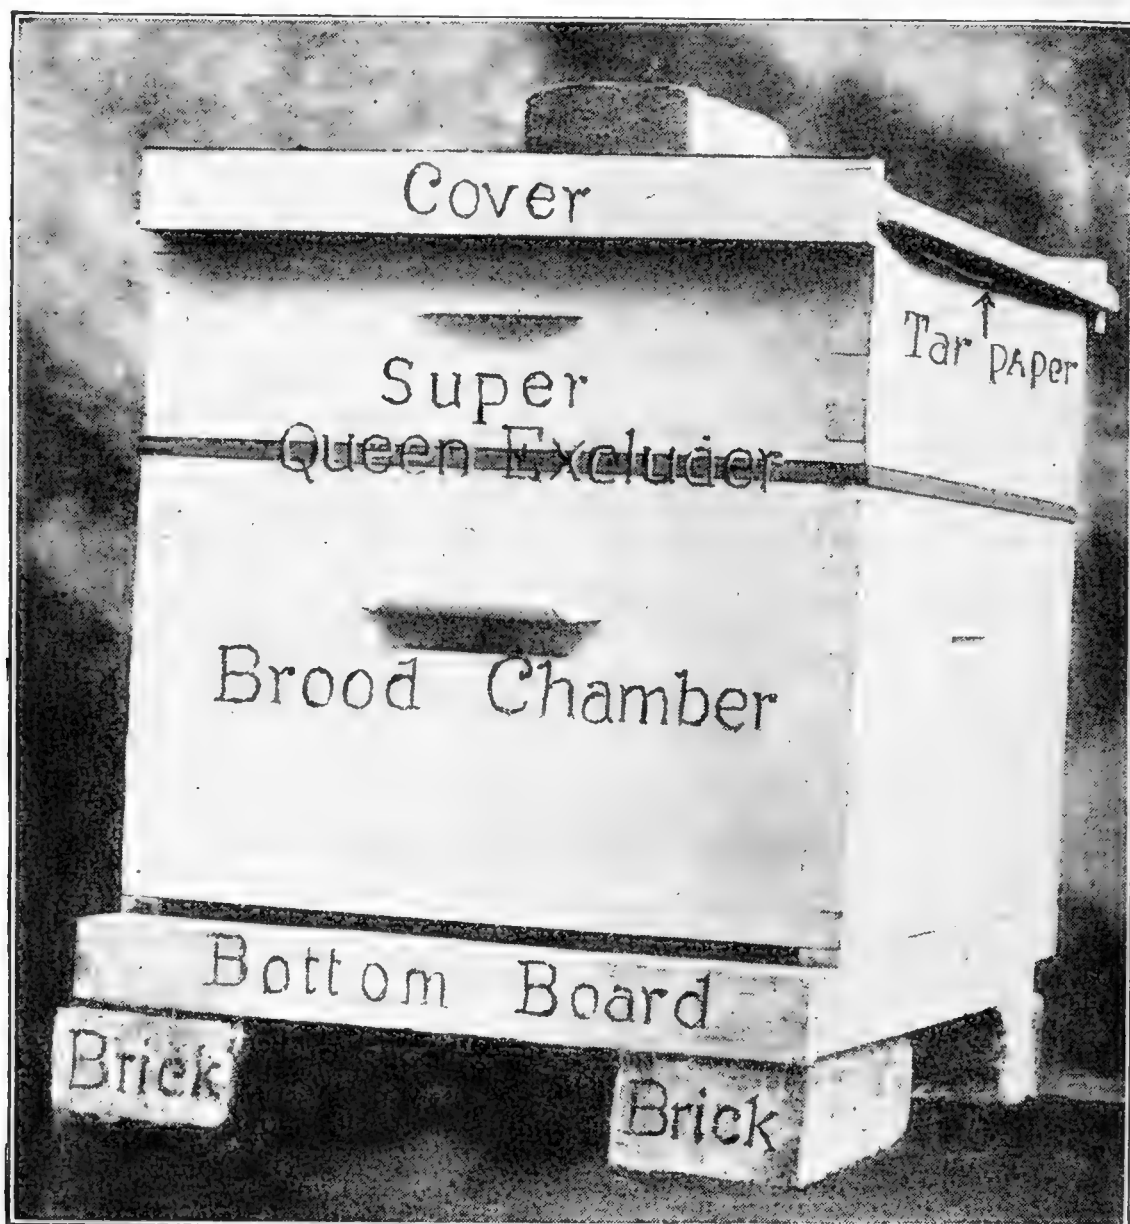 Cover
Tar pAper
Super
Queen Excluder
Brood Chamber
Bottom Board
Brick
Brick